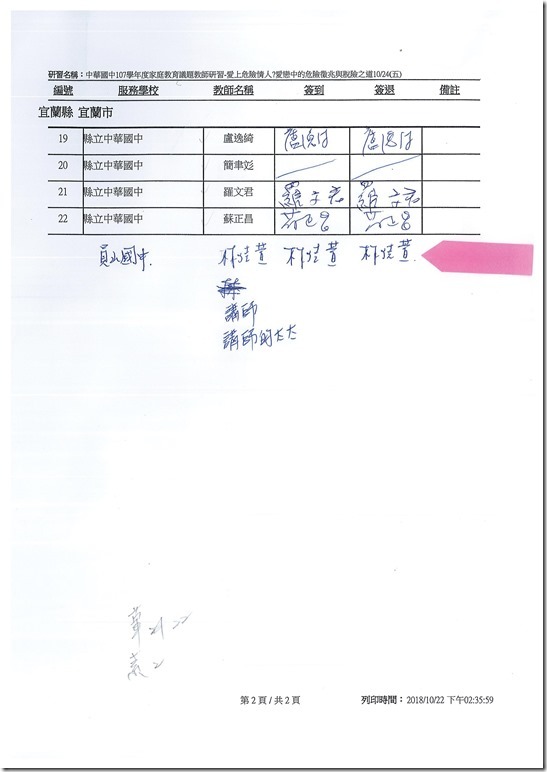 研習名稱：中華國中107學年度家庭教育議題教師研習-愛上危險情人?愛戀中的危險徵兆與脫險之道10/24(五)
編號 服務學校 教師名稱 簽到 簽退 備註
宜蘭縣 宜蘭市
19 縣立中華國中 盧逸綺 盧逸绮 盧逸绮
20 縣立中華國中 簡聿彣
21 縣立中華國中 羅文君 羅文君 羅文君
22 縣立中華國中 蘇正昌
員山國中. 林佳萱 林佳萱 林佳萱
講師
講師的太太
第 2 頁 / 共 2 頁 列印時間： 2018/10/22 下午02:35:59